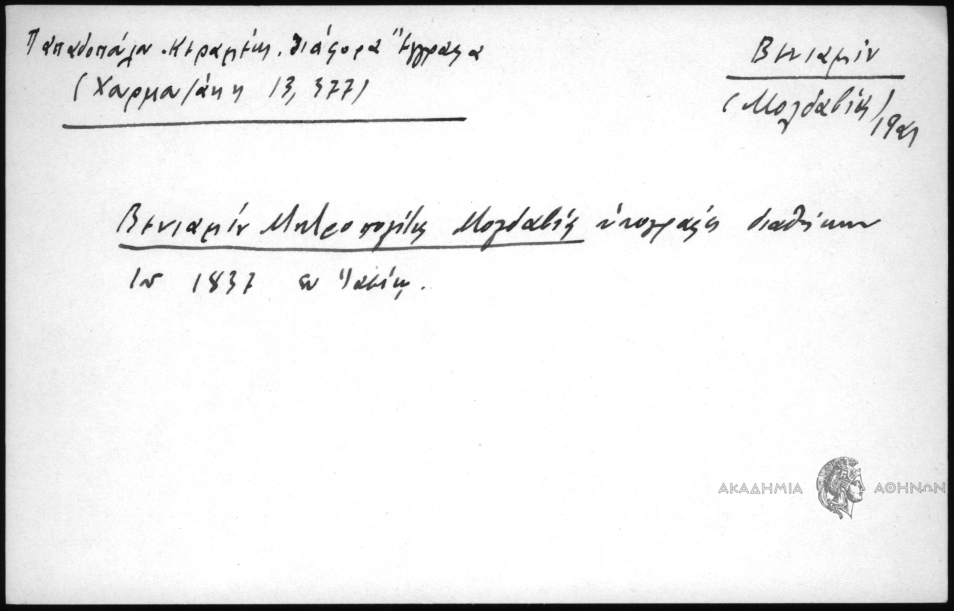 Παπαδοπούλου Κεραμέως. Διάφορα Ἔγγραφα
(Χαρματάκη 13, 377)
Βενιαμίν
(Μολδαβίας)
Βενιαμίν Μητροπολίτης Μολδαβίας ὑπογραφεὺς διαθήκην
1837 ἐν Ἰασίῳ.
ΑΚΑΔΗΜΙΑ ΑΘΗΝΩΝ